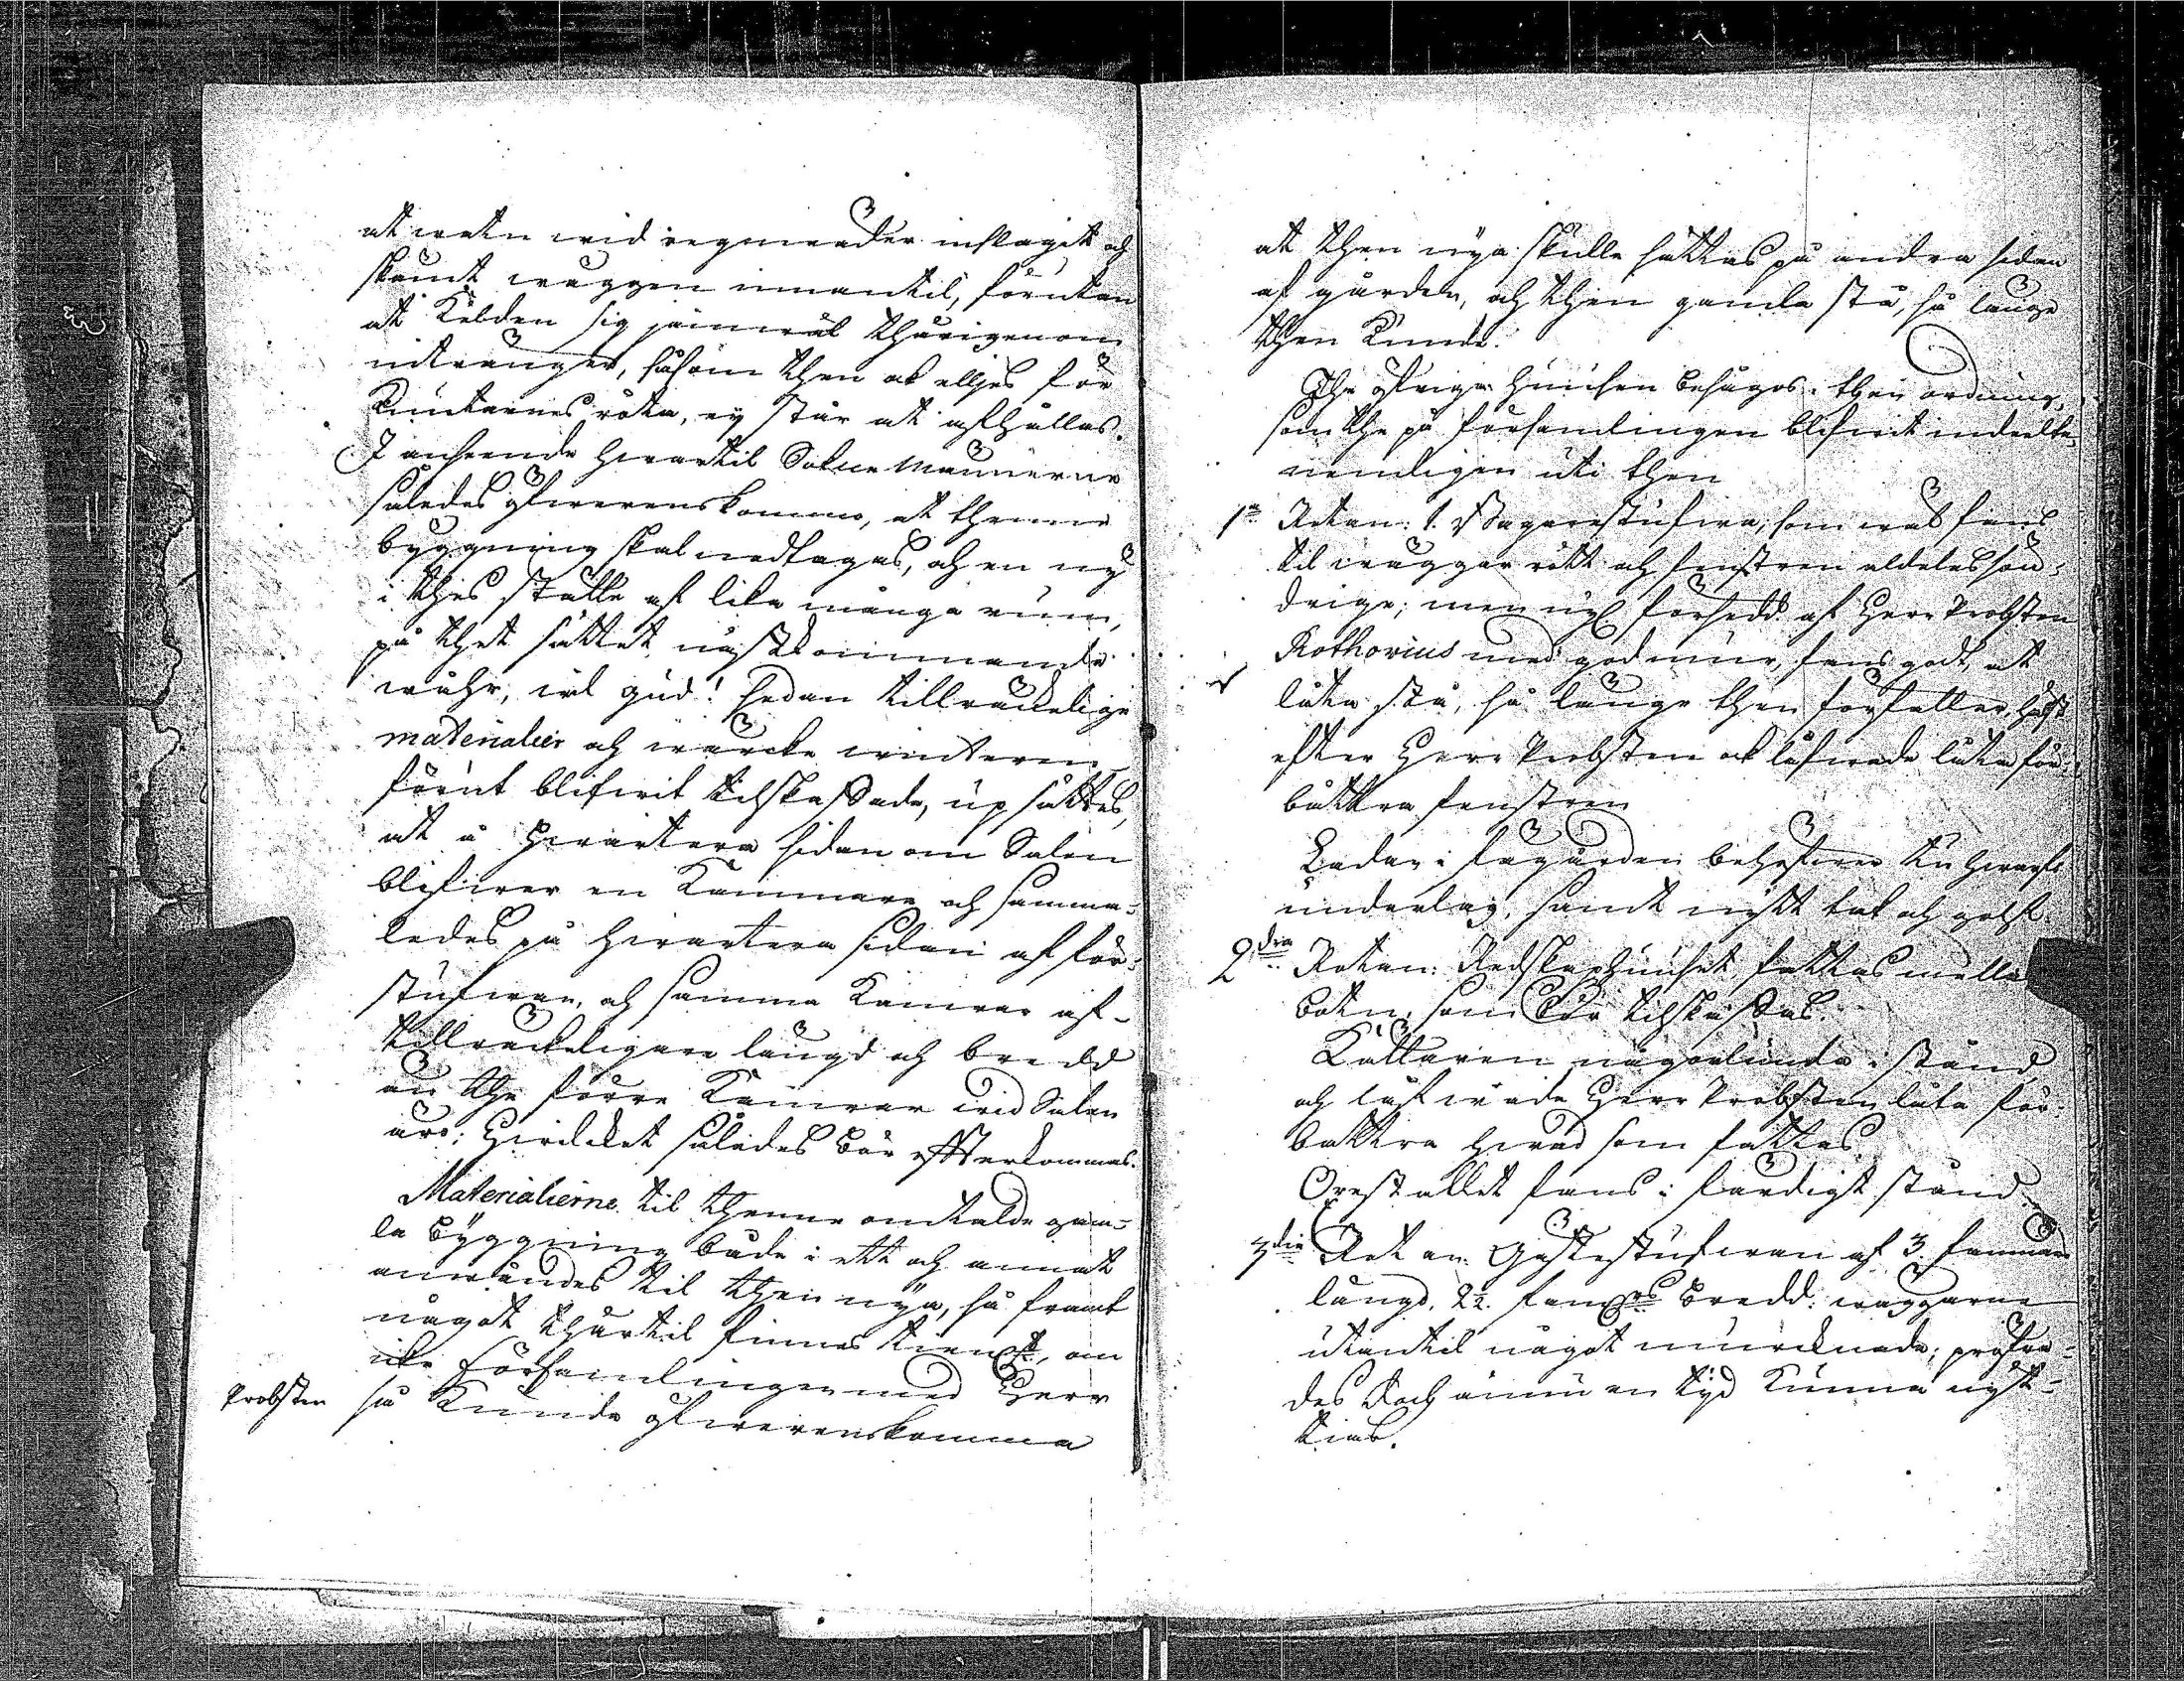 at watn wid regnwäder inslagit och
skämt wäggen innantil, förutan
at Kölden sig jämwäl thärigenom
inträngt, såsom then ock elljes för
Knutarnes röta, ej står at afhållas.
I anseende hwartil Sokne männerne
således öfwerenskommo, at thenne
byggning skal nedtagas, och en ny
i thes ställe af lika många rum,
på thet sättet nästkommande
wåhr, wil gud! sedan tillräckelige
materialier och wärcke winteren
förut blifwit tilskaffade, upsättes,
at å hwartera sidan om Salen
blifwer en Kammare och samma-
ledes på hwartera sidan af för-
stufwan, och samma Kamrar af
tillräckeligare längd och bredd
än the förre Kamrar wid Salen
äro; hwilcket således bör efterkommas.
Materialierne til thenne omtalde gam-
la byggning både i ett och annat
anwändes til then nya, så framt
något thärtil finnes tienligt, om
icke församlingen med Herr
Probsten så Kunde öfwerenskomma
at then nya skulle sättas på andra sidan
af gården, och then gamla stå, så länge
then Kunde.
The öfriga husen besågos i then ordning,
som the på församlingen blifwit indeelte,
nemligen uti then
1a Rotan: 1. Bagarestufwa, som wäl fans
til wäggar rött och fenstren aldeles sön-
drige; men nyl. försedd af Herr Probsten
Rothovius med god mur, fans godt, at
låta stå, så länge then förfaller, hälst
efter Herr Probsten ock låfwade låta för-
bättra fenstren
Ladan i fägården behöfwer tu hwarf
underlag, samt nytt tak och golf.
2dra Rotan: Redskaphuset fattas mella
botn, som bör tilskaffas.
Källaren någorlunda i stånd
och låfwade Herr Probsten låta för-
bättra hwad som fattas.
Orestallet fans i färdigt stånd
3die Rotan: Gästestufwan af 3. famnars
längd, 2½ famnrs bredd: wäggarne
utantil något murcknade; pröfwa-
des doch ännu en tijd Kunna nytt-
tias.